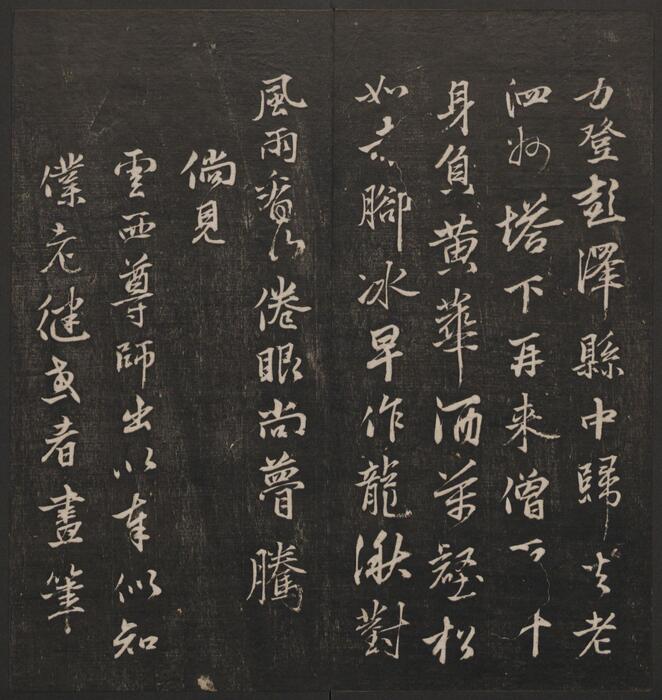 力登彭澤縣中歸去老
泗州塔下再來僧可十
身負黃華酒萬壑松
如赤腳冰早作龍湫對
風雨看山倦眼尚瞢騰
倘見
雲西尊師出以奉似知
僕老健者畫筆